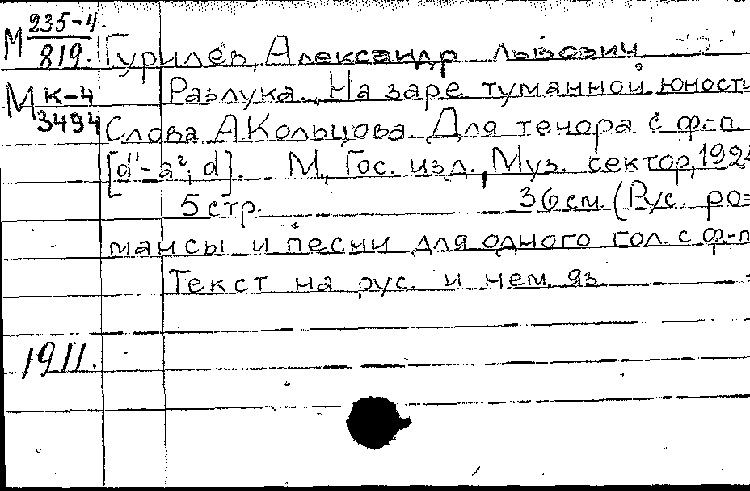 М 235-4
819.
Гурилев, Александр Львович
М К-4
3494
Разлука. На заре туманной юности
Слова А Кольцова. Для тенора с ф-п.
[d'-a², d]. М, Гос. изд., Муз. сектор, 192
5 стр. 36 см. (Рус. ро=
мансы и песни для одного гол. с ф-п
Текст на рус. и нем. яз.
1911.